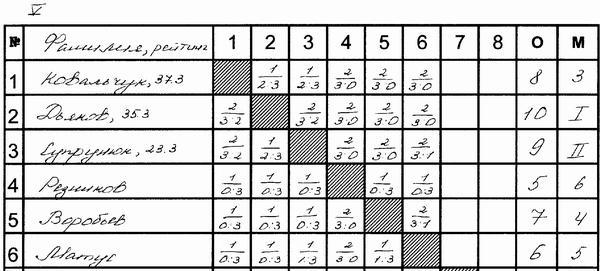 V
№ Фамилия, рейтинг 1 2 3 4 5 6 7 8 О М
1 Ковальчук, 37.3 1/2:3 1/2:3 2/3:0 2/3:0 2/3:0 8 3
2 Дьяков, 35.3 2/3:2 2/3:2 2/3:0 2/3:0 2/3:0 10 I
3 Супрунюк, 23.3 2/3:2 1/2:3 2/3:0 2/3:0 2/3:1 9 II
4 Резников 1/0:3 1/0:3 1/0:3 1/0:3 1/0:3 5 6
5 Воробьев 1/0:3 1/0:3 1/0:3 2/3:0 2/3:1 7 4
6 Матус 1/0:3 1/0:3 1/1:3 2/3:0 1/1:3 6 5